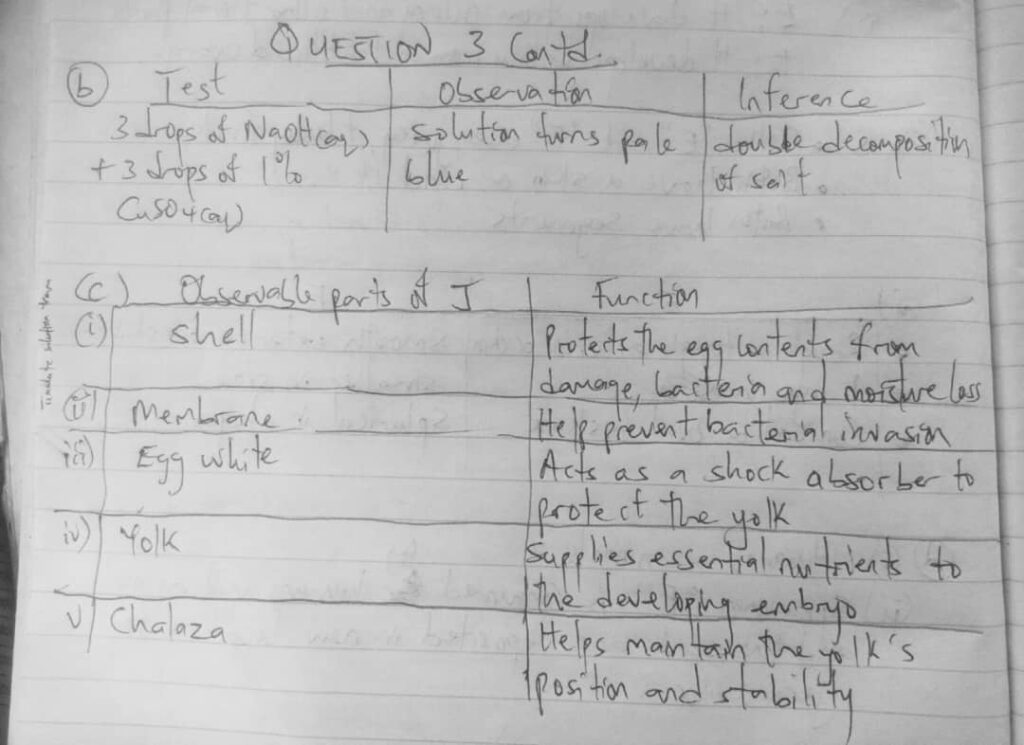 QUESTION 3 Contd.
(b) Test Observation Inference
3 drops of NaOH(aq) solution turns pale double decomposition
+ 3 drops of 1% blue of salt.
CuSO4(aq)
(c) Observable parts of J Function
(i) shell Protects the egg contents from
damage, bacteria and moisture loss
(ii) Membrane Help prevent bacterial invasion
iii) Egg white Acts as a shock absorber to
protect the yolk
iv) Yolk Supplies essential nutrients to
the developing embryo
v) Chalaza Helps maintain the yolk's
position and stability